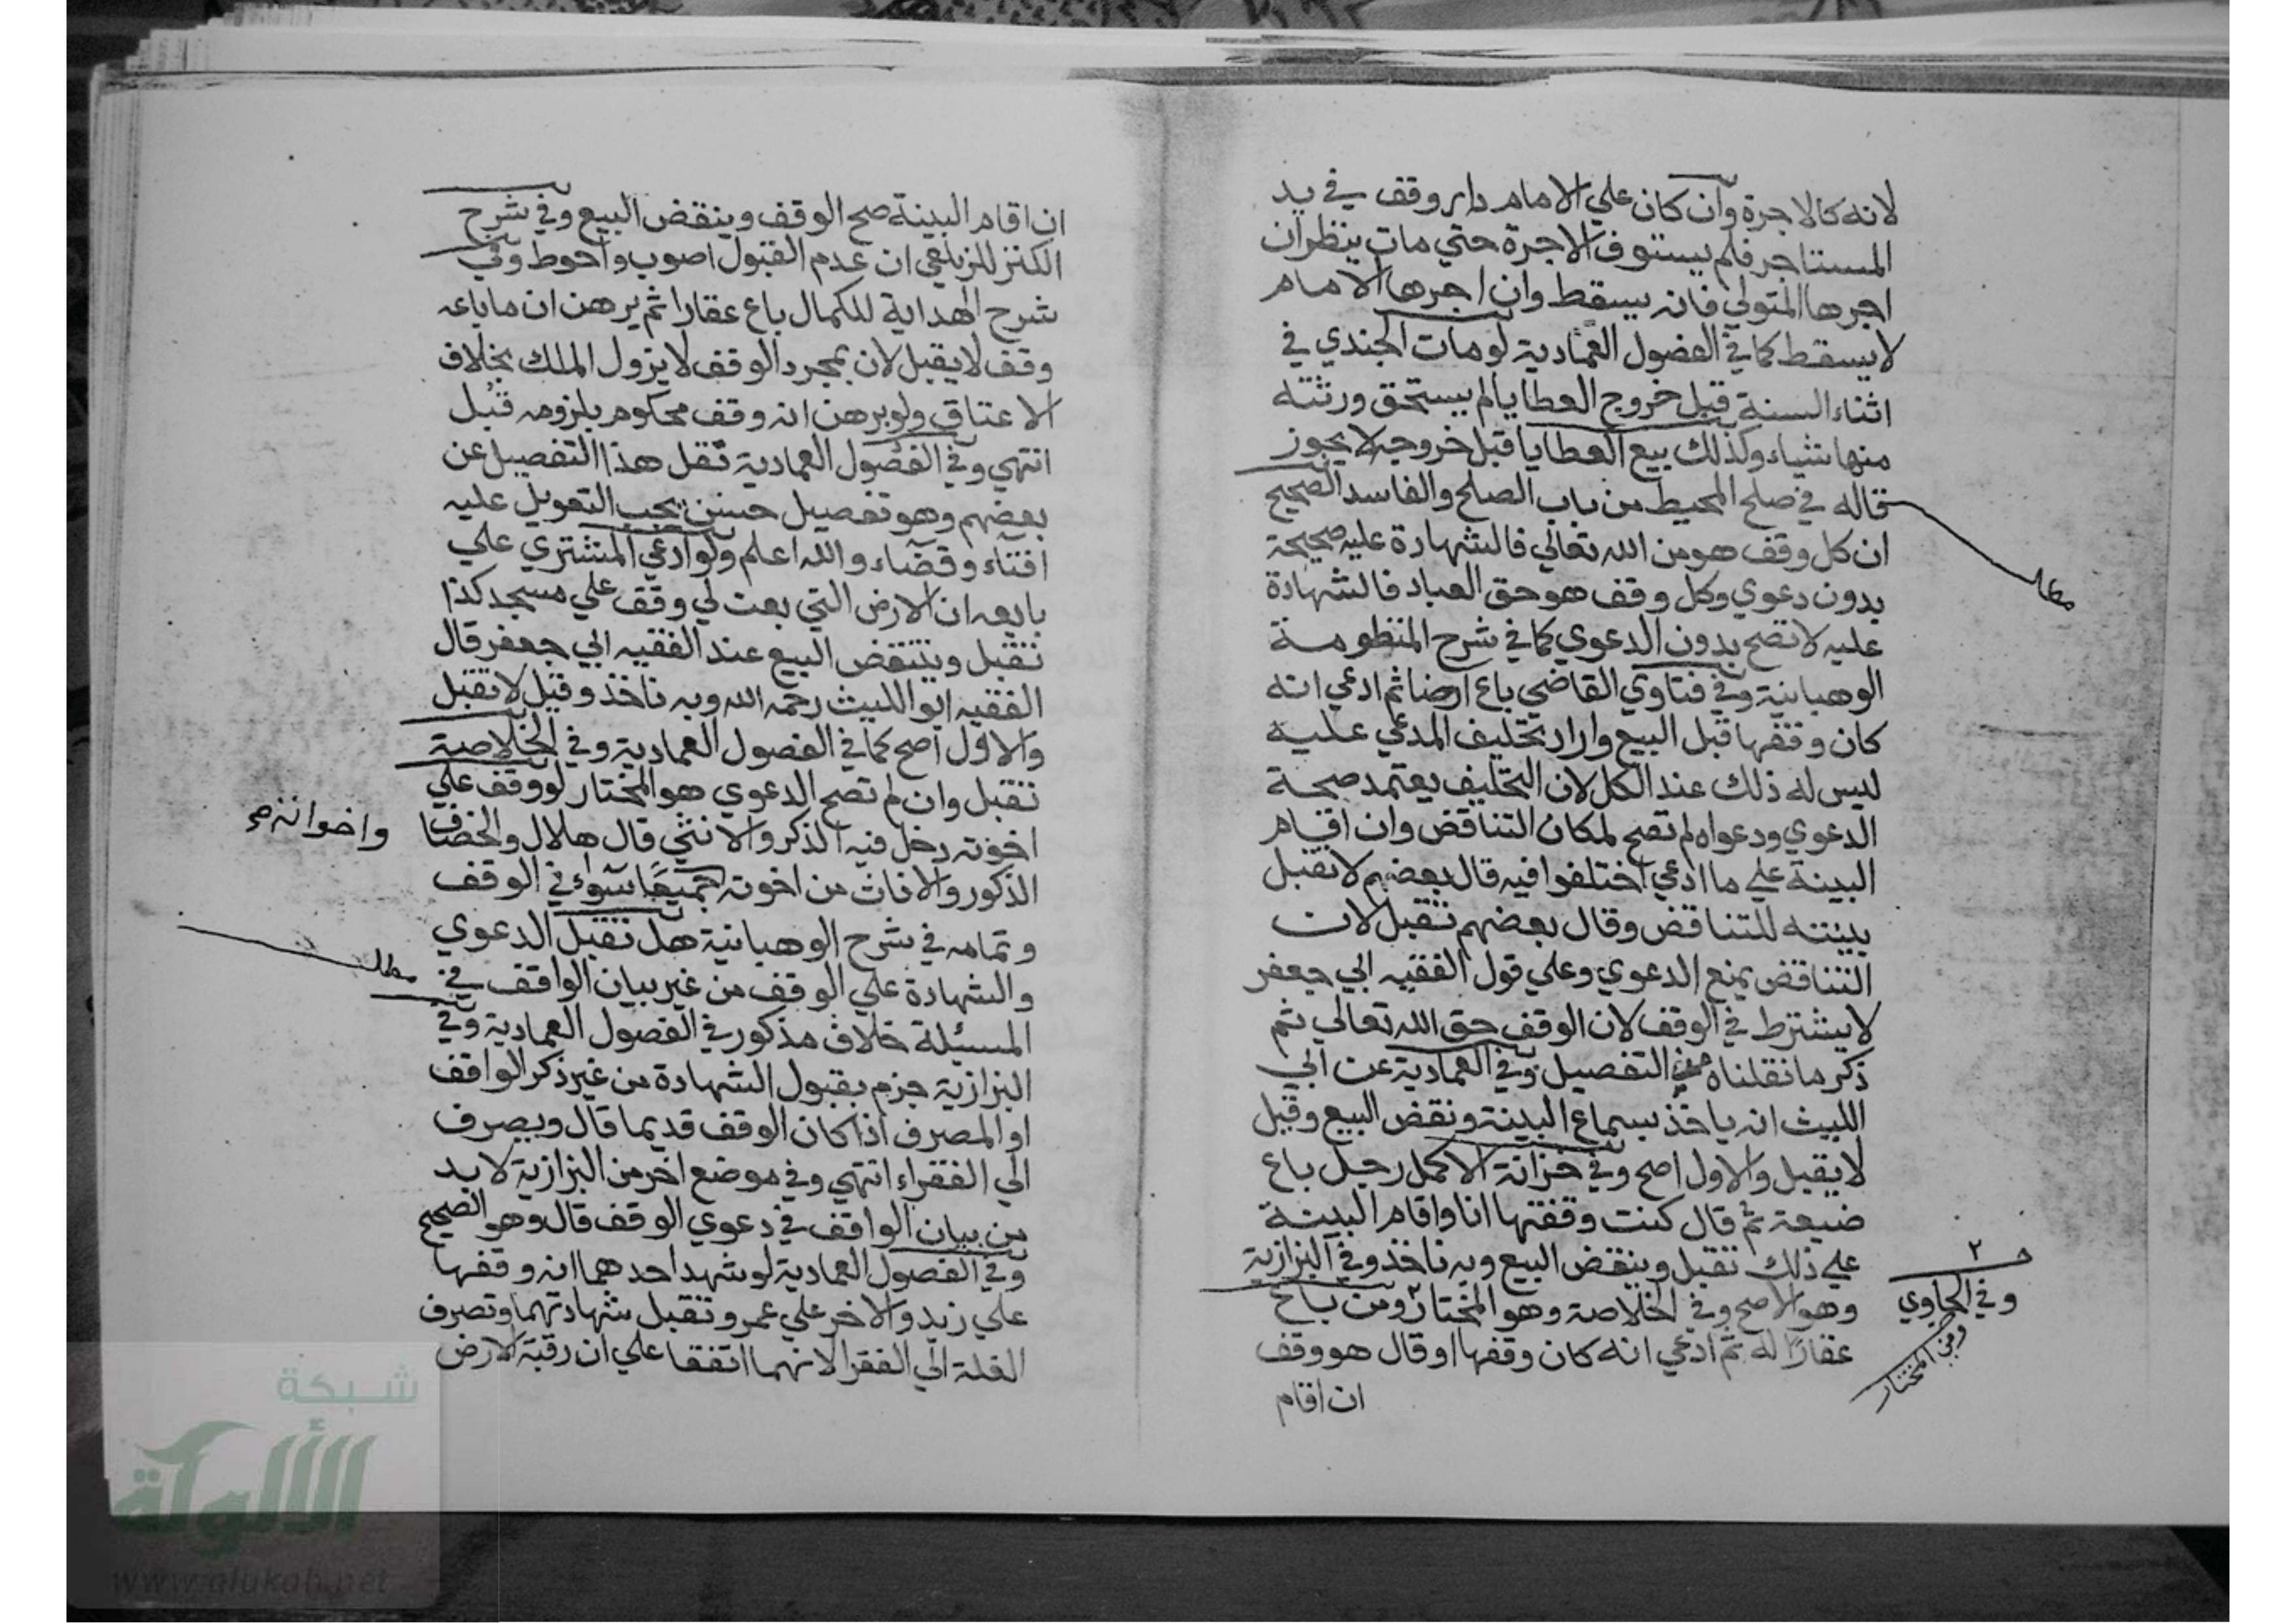 لانه كالاجرة وان كان علي الامام دار وقف في يد
المستاجر فلم يستوف الاجرة حتي مات ينظر ان
اجرها المتولي فانه يسقط وان اجرها الامام
لا يسقط كما في الفصول العمادية لو مات الجندي في
اثناء السنة قبل خروج العطايا لم يستحق ورثته
منها شياء وكذلك بيع العطايا قبل خروجه لا يجوز
قاله في صلح المحيط من باب الصلح والفاسد الصحيح
ان كل وقف هو من الله تعالي فالشهادة عليه صحيحة
بدون دعوي وكل وقف هو حق العباد فالشهادة
عليه لا تصح بدون الدعوي كما في شرح المنظومة
الوهبانية وفي فتاوي القاضي باع ارضا ثم ادعي انه
كان وقفها قبل البيع واراد تحليف المدعي عليه
ليس له ذلك عند الكل لان التحليف يعتمد صحة
الدعوي ودعواه لم تصح لمكان التناقض وان اقام
البينة علي ما ادعي اختلفوا فيه قال بعضهم لا تقبل
بينته للتناقض وقال بعضهم تقبل لان
التناقض يمنع الدعوي وعلي قول الفقيه ابي جعفر
لا يشترط في الوقف لان الوقف حق الله تعالي ثم
ذكر ما نقلناه من التفصيل وفي العمادية عن ابي
الليث انه ياخذ بسماع البينة ونقض البيع وقيل
لا يقبل والاول اصح وفي خزانة الاكمل رجل باع
ضيعة ثم قال كنت وقفتها انا واقام البينة
علي ذلك تقبل وينقض البيع وبه ناخذ وفي البزازية
وهو الاصح وفي الخلاصة وهو المختار ٢ ومن باع
عقارا له ثم ادعي انه كان وقفها او قال هو وقف
ان اقام
مطلب
٢
وفي الحاوي
ومن المختار
ان اقام البينة صح الوقف وينقض البيع وفي شرح
الكنز للزيلعي ان عدم القبول اصوب واحوط وفي
شرح الهداية للكمال باع عقارا ثم برهن ان ما باعه
وقف لا يقبل لان بمجرد الوقف لا يزول الملك بخلاف
الاعتاق ولو برهن انه وقف محكوم بلزومه قبل
انتهي وفي الفصول العمادية نقل هذا التفصيل عن
بعضهم وهو تفصيل حسن يجب التعويل عليه
افتاء وقضاء والله اعلم ولو ادعي المشتري علي
بايعه ان الارض التي بعت لي وقف علي مسجد كذا
تقبل وينتقض البيع عند الفقيه ابي جعفر قال
الفقيه ابو الليث رحمه الله وبه ناخذ وقيل لا تقبل
والاول اصح كما في الفصول العمادية وفي الخلاصة
تقبل وان لم تصح الدعوي هو المختار لو وقف علي
اخوته دخل فيه الذكر والانثي قال هلال والخصاف
الذكور والاناث من اخوته جميعا سواء في الوقف
وتمامه في شرح الوهبانية هل تقبل الدعوي
والشهادة علي الوقف من غير بيان الواقف في
المسئلة خلاف مذكور في الفصول العمادية وفي
البزازية جزم بقبول الشهادة من غير ذكر الواقف
او المصرف اذا كان الوقف قديما قال ويصرف
الي الفقراء انتهي وفي موضع اخر من البزازية لا بد
من بيان الواقف في دعوي الوقف قال وهو الصحيح
وفي الفصول العمادية لو شهد احدهما انه وقفها
علي زيد والاخر علي عمرو تقبل شهادتهما وتصرف
الغلة الي الفقرا لانهما اتفقا علي ان رقبة الارض
واخواته صح
مطلب
شبكة
الألوكة
www.alukah.net